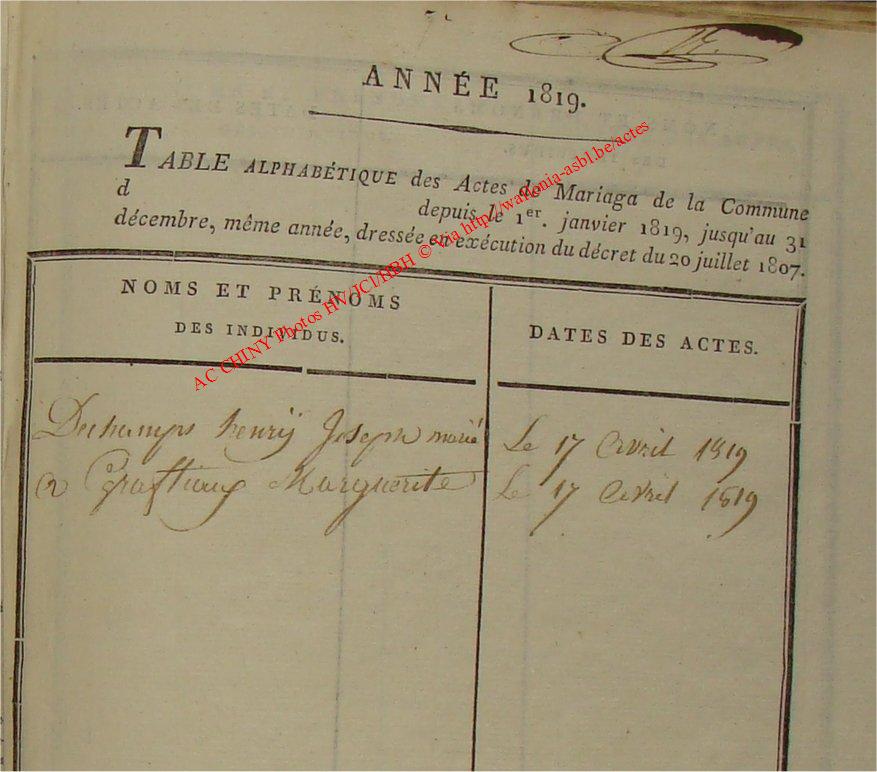 ANNÉE 1819.
TABLE ALPHABÉTIQUE des Actes de Mariaga de la Commune
d depuis le 1er. janvier 1819, jusqu'au 31
décembre, même année, dressée en exécution du décret du 20 juillet 1807.
NOMS ET PRÉNOMS
DES INDIVIDUS.
DATES DES ACTES.
Dechamps henrÿ Joseph marié Le 17 Avril 1819
a Graftiaux Marguerite Le 17 Avril 1819
AC CHINY Photos HV/JCl/RBH © Via http://wallonia-asbl.be/actes